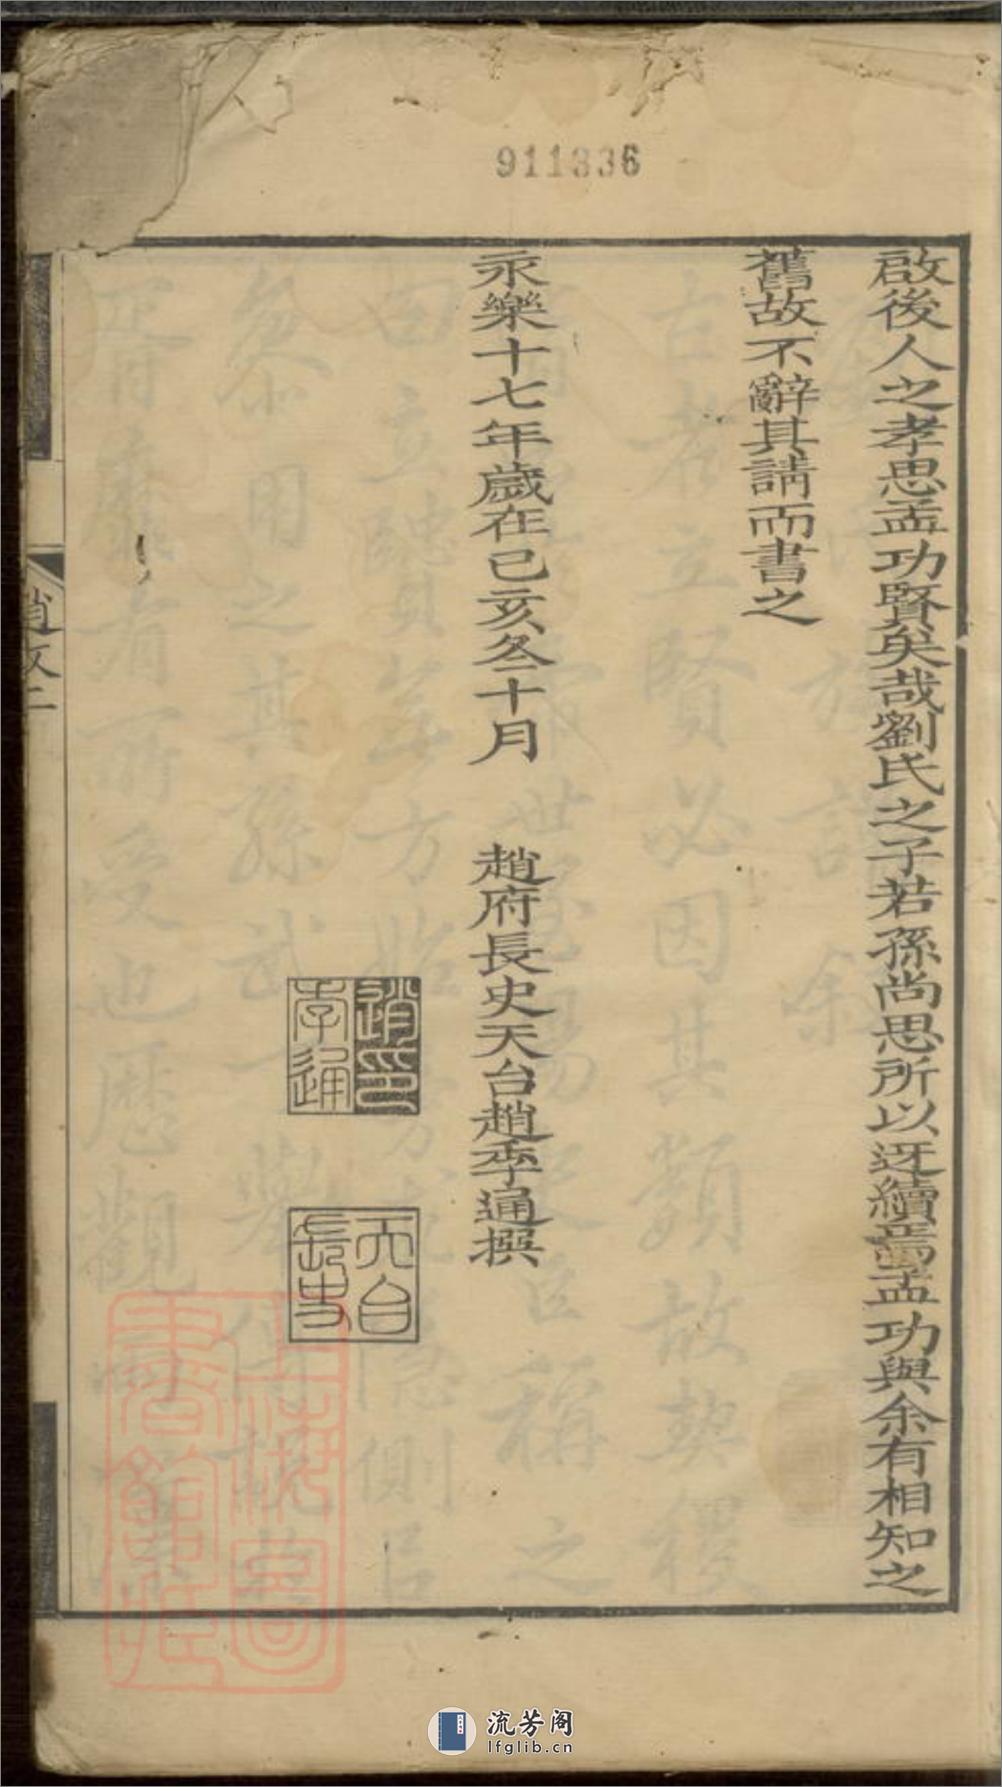 911336
啟後人之孝思孟功賢矣哉劉氏之子若孫尚思所以迓續焉孟功與余有相知之
舊故不辭其請而書之
永樂十七年歲在己亥冬十月 趙府長史天台趙季通撰
趙印季通
天台長史
趙文二
上海圖書館藏
流芳阁
lfglib.cn